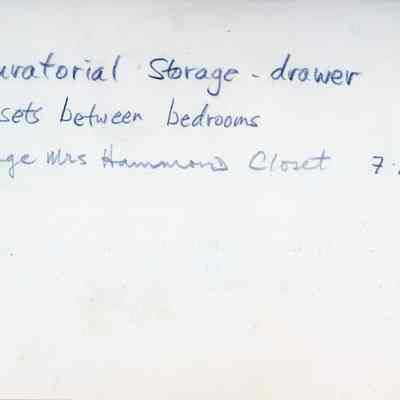 uratorial Storage - drawer
sets between bedrooms
ge Mrs Hammond Closet 7.